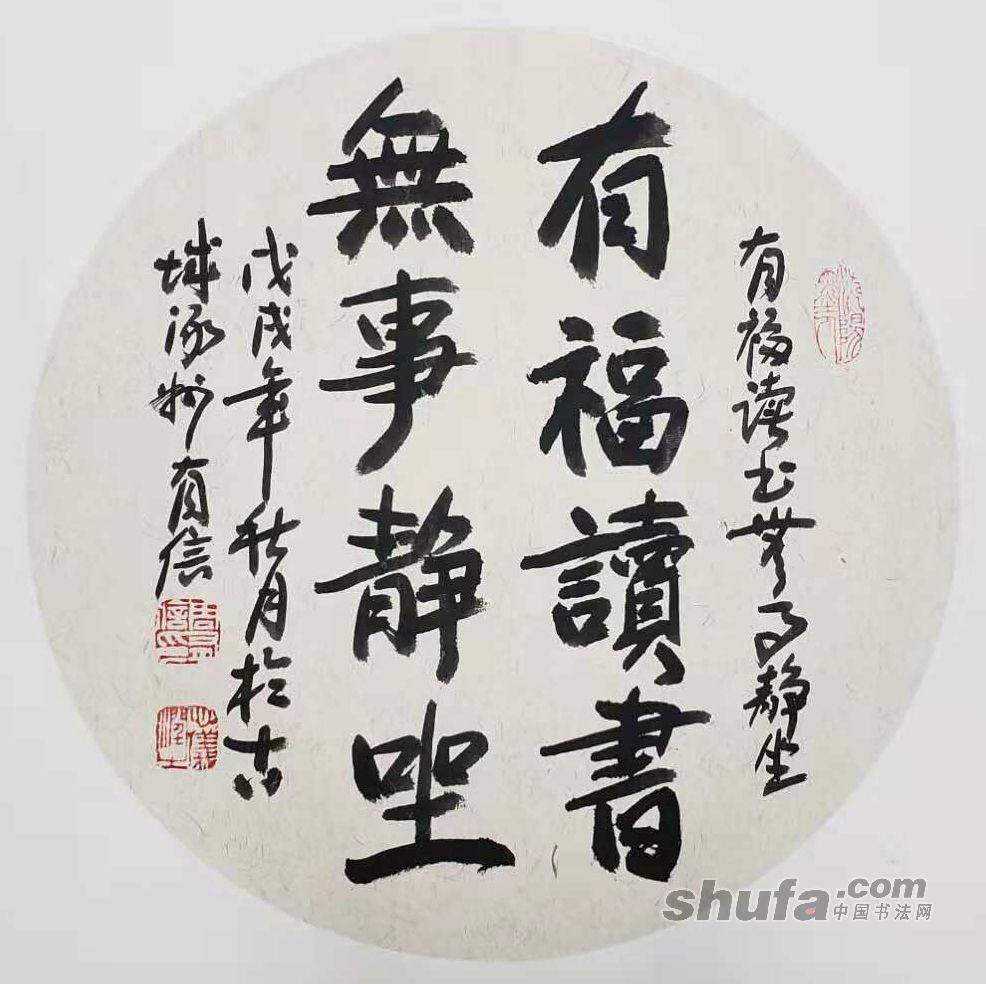 有福读书无事静坐
有福讀書
無事靜坐
戊戌年秋月於古
城涿州有信
shufa.com
中国书法网